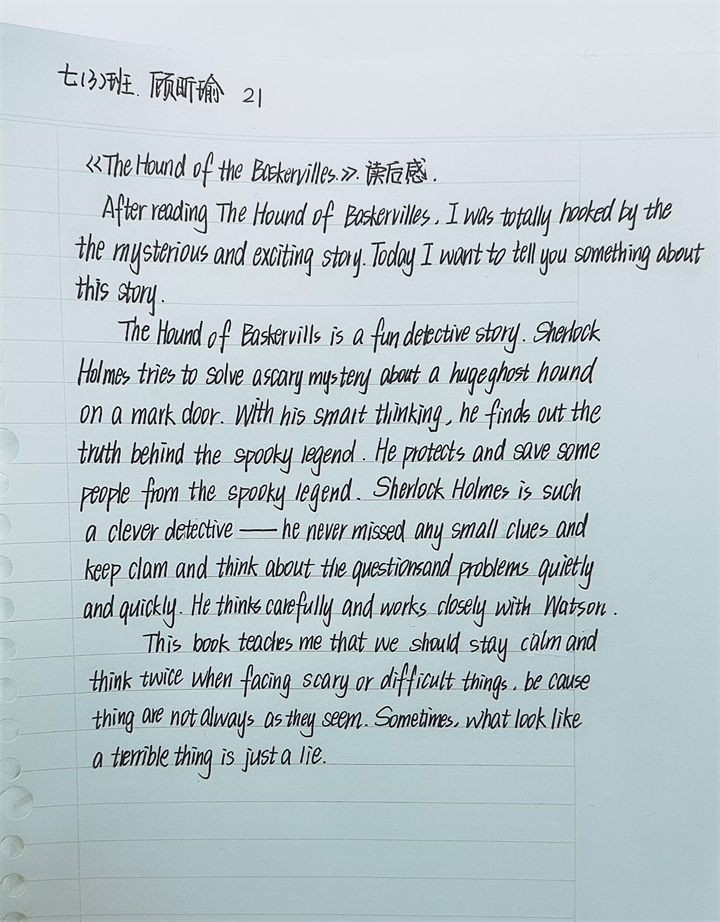 七(3)班. 顾昕瑜 21
《The Hound of the Baskervilles.》. 读后感.
After reading The Hound of Baskervilles, I was totally hooked by the
the mysterious and exciting story. Today I want to tell you something about
this story.
The Hound of Baskervills is a fun detective story. Sherlock
Holmes tries to solve a scary mystery about a huge ghost hound
on a mark door. With his smart thinking, he finds out the
truth behind the spooky legend. He protects and save some
people from the spooky legend. Sherlock Holmes is such
a clever detective —— he never missed any small clues and
keep clam and think about the questions and problems quietly
and quickly. He thinks carefully and works closely with Watson.
This book teaches me that we should stay calm and
think twice when facing scary or difficult things, be cause
thing are not always as they seem. Sometimes, what look like
a terrible thing is just a lie.